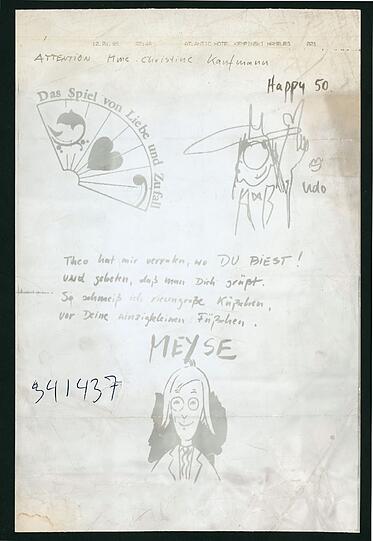 ATLANTIC HOTEL KEMPINSKI HAMBURG
ATTENTION Mme. Christine Kaufmann
Happy 50
Das Spiel von Liebe und Zufall
Udo
Theo hat mir verraten, wo DU BIEST!
Und gebeten, daß man Dich grüßt.
So schmeiß ich riesengroße Küßchen,
vor Deine winzigkleinen Füßchen.
MEYSE
341437